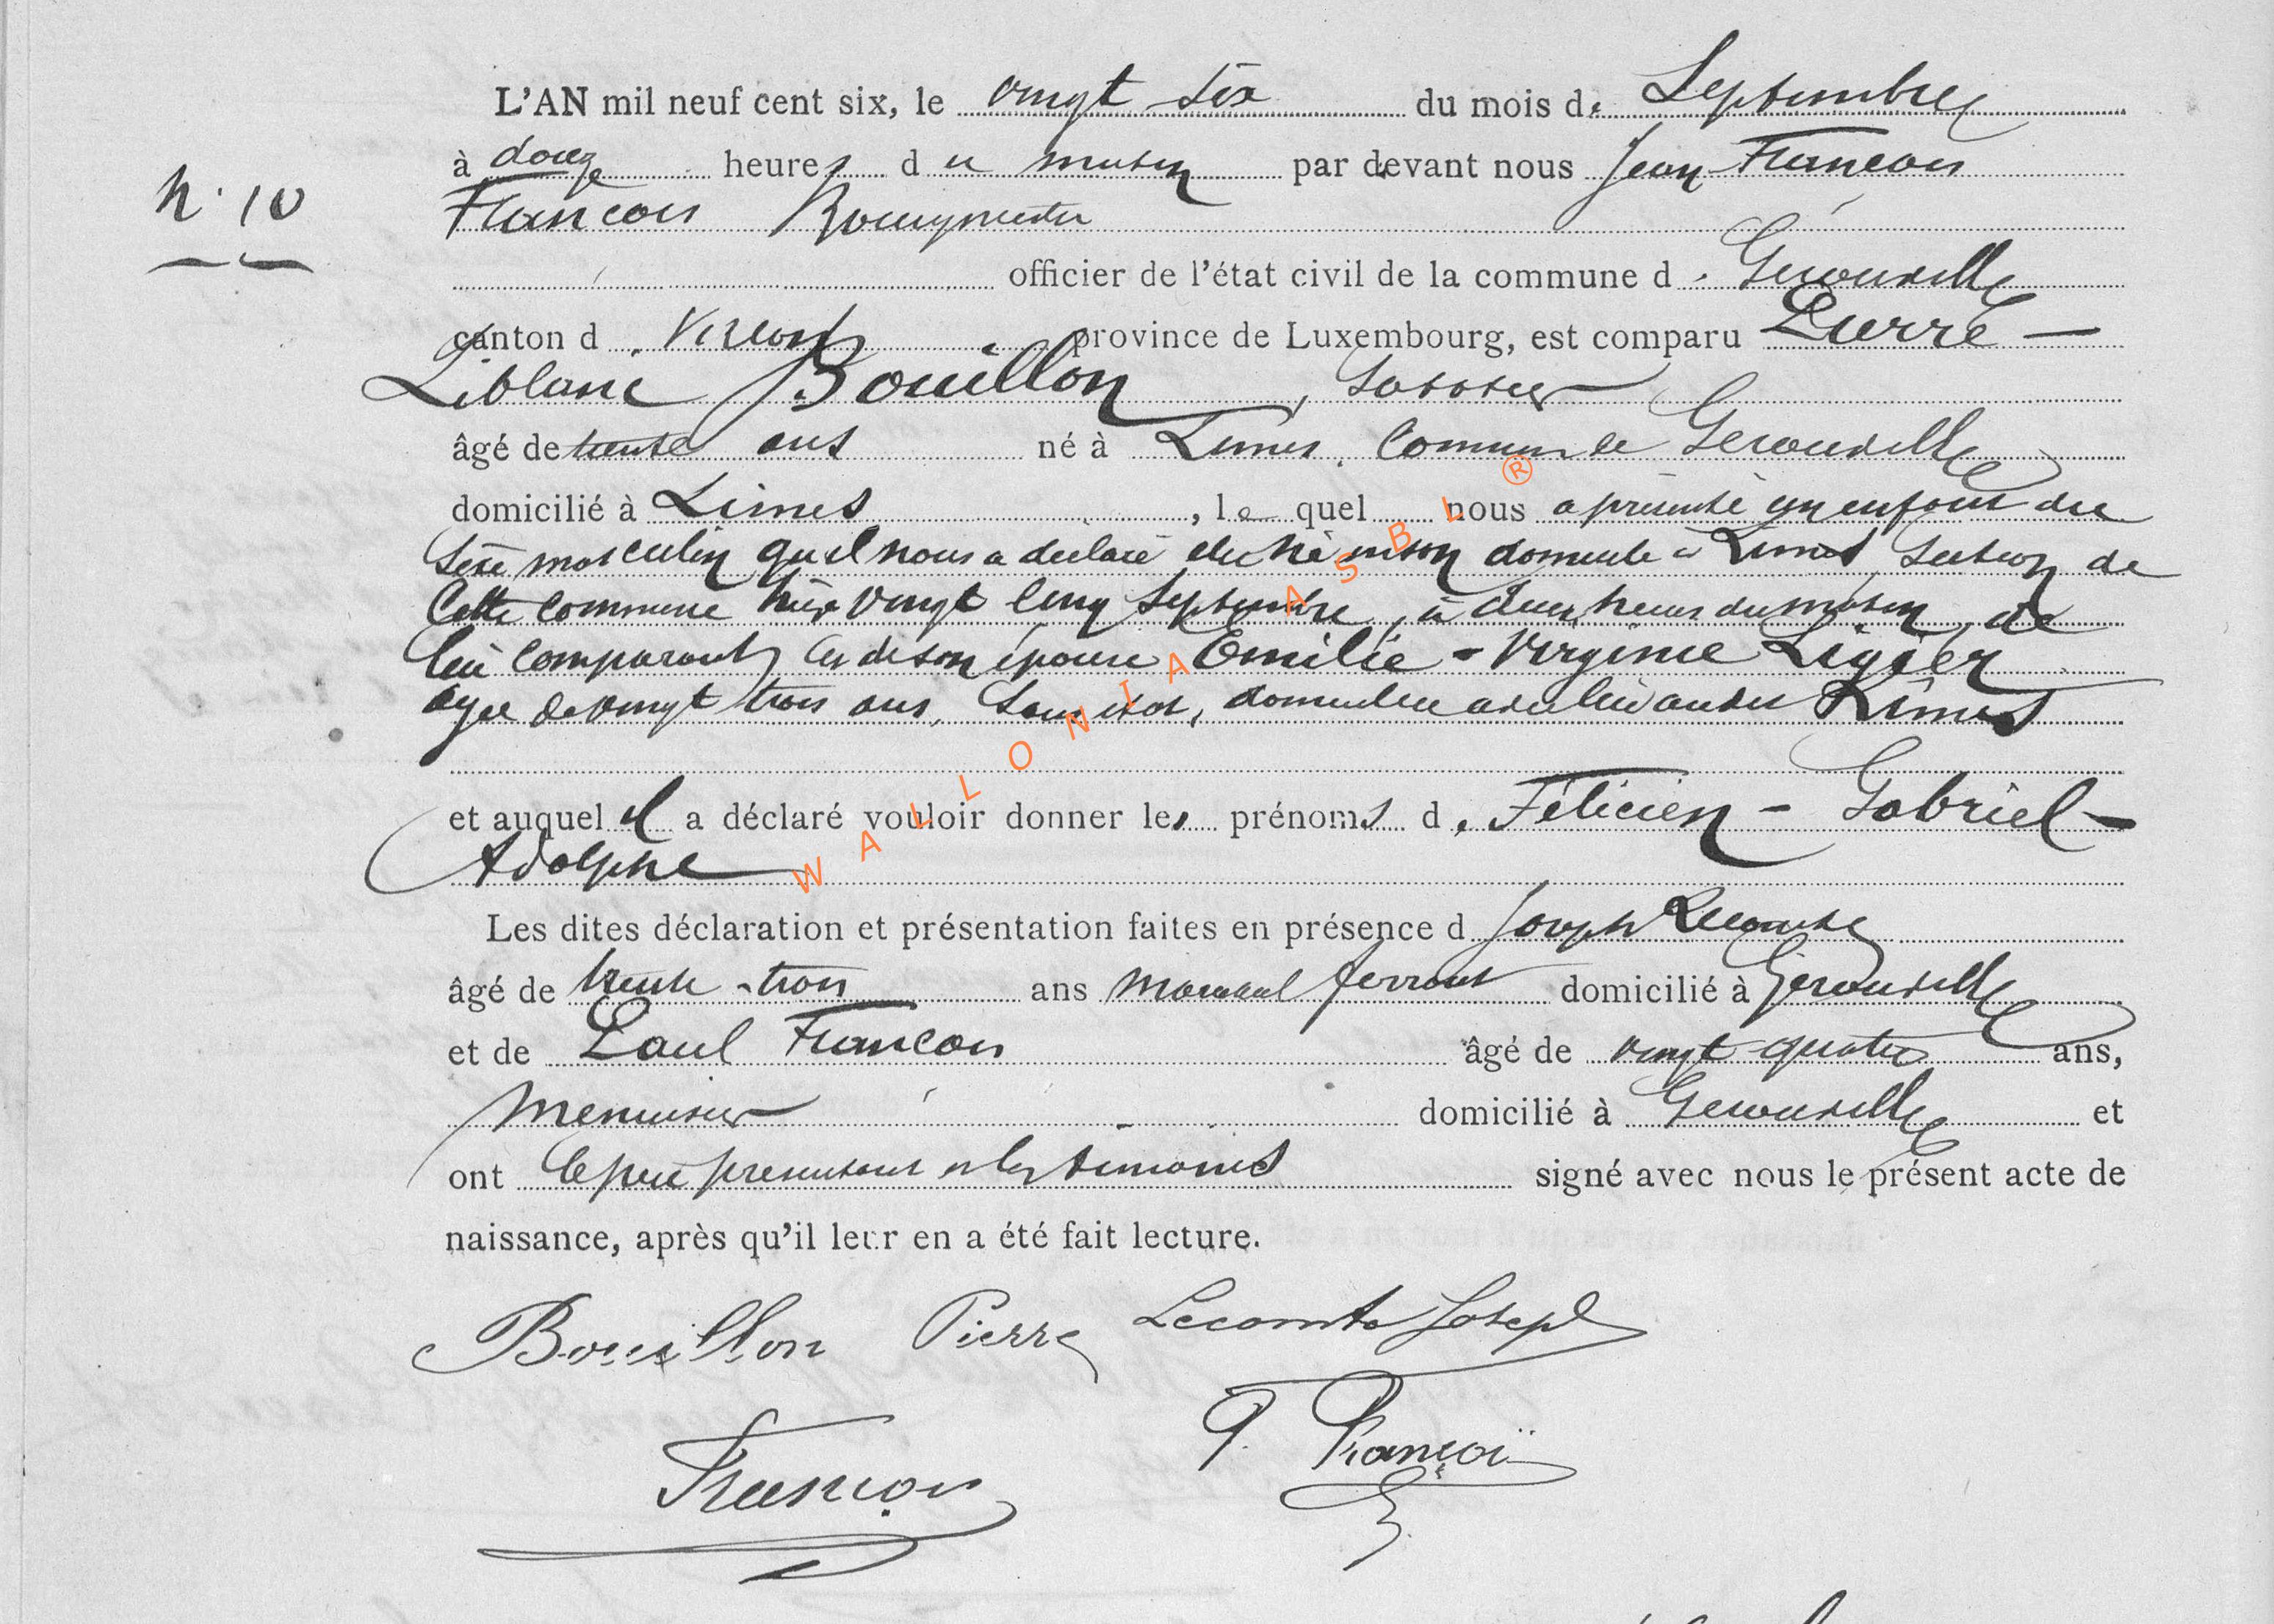 L'AN mil neuf cent six, le vingt six du mois de Septembre
à douze heures du matin par devant nous Jean François
N° 10
François Bourgmestre
officier de l'état civil de la commune de Gerouville
canton de Virton province de Luxembourg, est comparu Pierre -
Leblanc Bouillon, sabotier
âgé de trente ans né à Limes, Commune de Gerouville
domicilié à Limes, le quel nous a présenté un enfant du
sexe masculin qu'il nous a declaré etre né en son domicile à Limes, section de
cette commune hier vingt cinq Septembre, à deux heures du matin, de
lui comparant, et de son épouse Emilie - Virginie Ligier
agee de vingt trois ans, sans etat, domiciliee avec lui au dit Limes
et auquel il a déclaré vouloir donner les prénoms de Félicien - Gabriel -
Adolphe
Les dites déclaration et présentation faites en présence d Joseph Lecomte
âgé de trente-trois ans marechal ferrant domicilié à Gerouville
et de Paul François âgé de vingt quatre ans,
menuisier domicilié à Gerouville et
ont le pere presentant et les témoins signé avec nous le présent acte de
naissance, après qu'il leur en a été fait lecture.
Bouillon Pierre Lecomte Joseph
P. François
François
WALLONIA ASBL ®